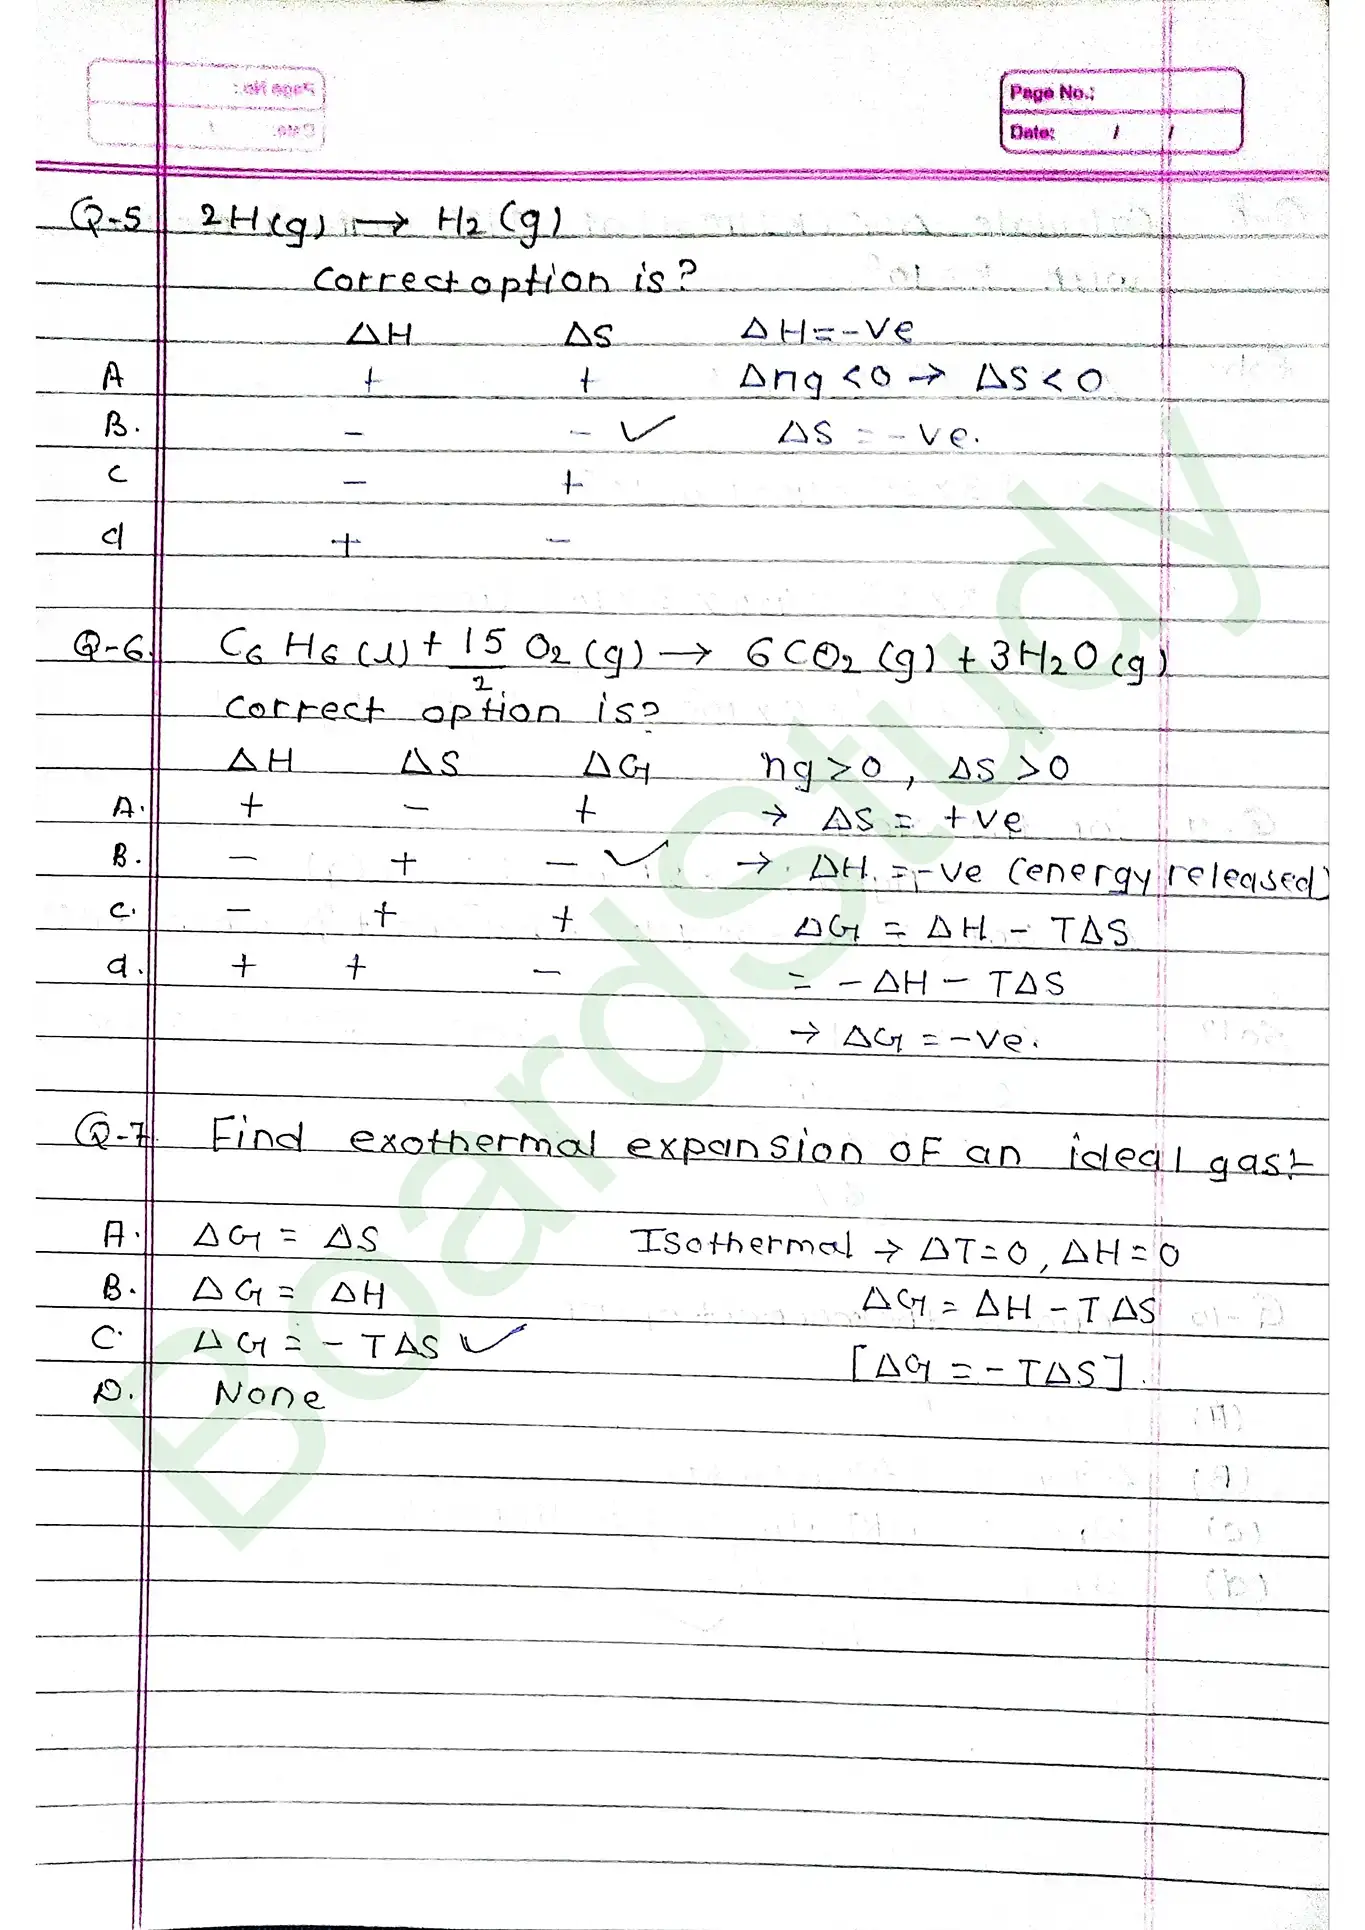 Page No.:
Date: / /
Q-5 2H(g) → H2(g)
Correct option is?
ΔH ΔS ΔH=-Ve
A + + Δng <0 → ΔS < 0
B. - - ✓ ΔS = -ve.
C - +
d + -
Q-6. C6H6(l) + 15/2 O2(g) → 6CO2(g) + 3H2O(g)
Correct option is?
ΔH ΔS ΔG ng>0, ΔS >0
A. + - + → ΔS = +ve
B. - + - ✓ → ΔH = -ve (energy released)
C. - + + ΔG = ΔH - TΔS
d. + + - = -ΔH - TΔS
→ ΔG = -ve.
Q-7. Find exothermal expansion of an ideal gas?
A. ΔG = ΔS Isothermal → ΔT=0, ΔH=0
B. ΔG = ΔH ΔG = ΔH - TΔS
C. ΔG = - TΔS ✓ [ΔG = - TΔS].
D. None
BoardStudy